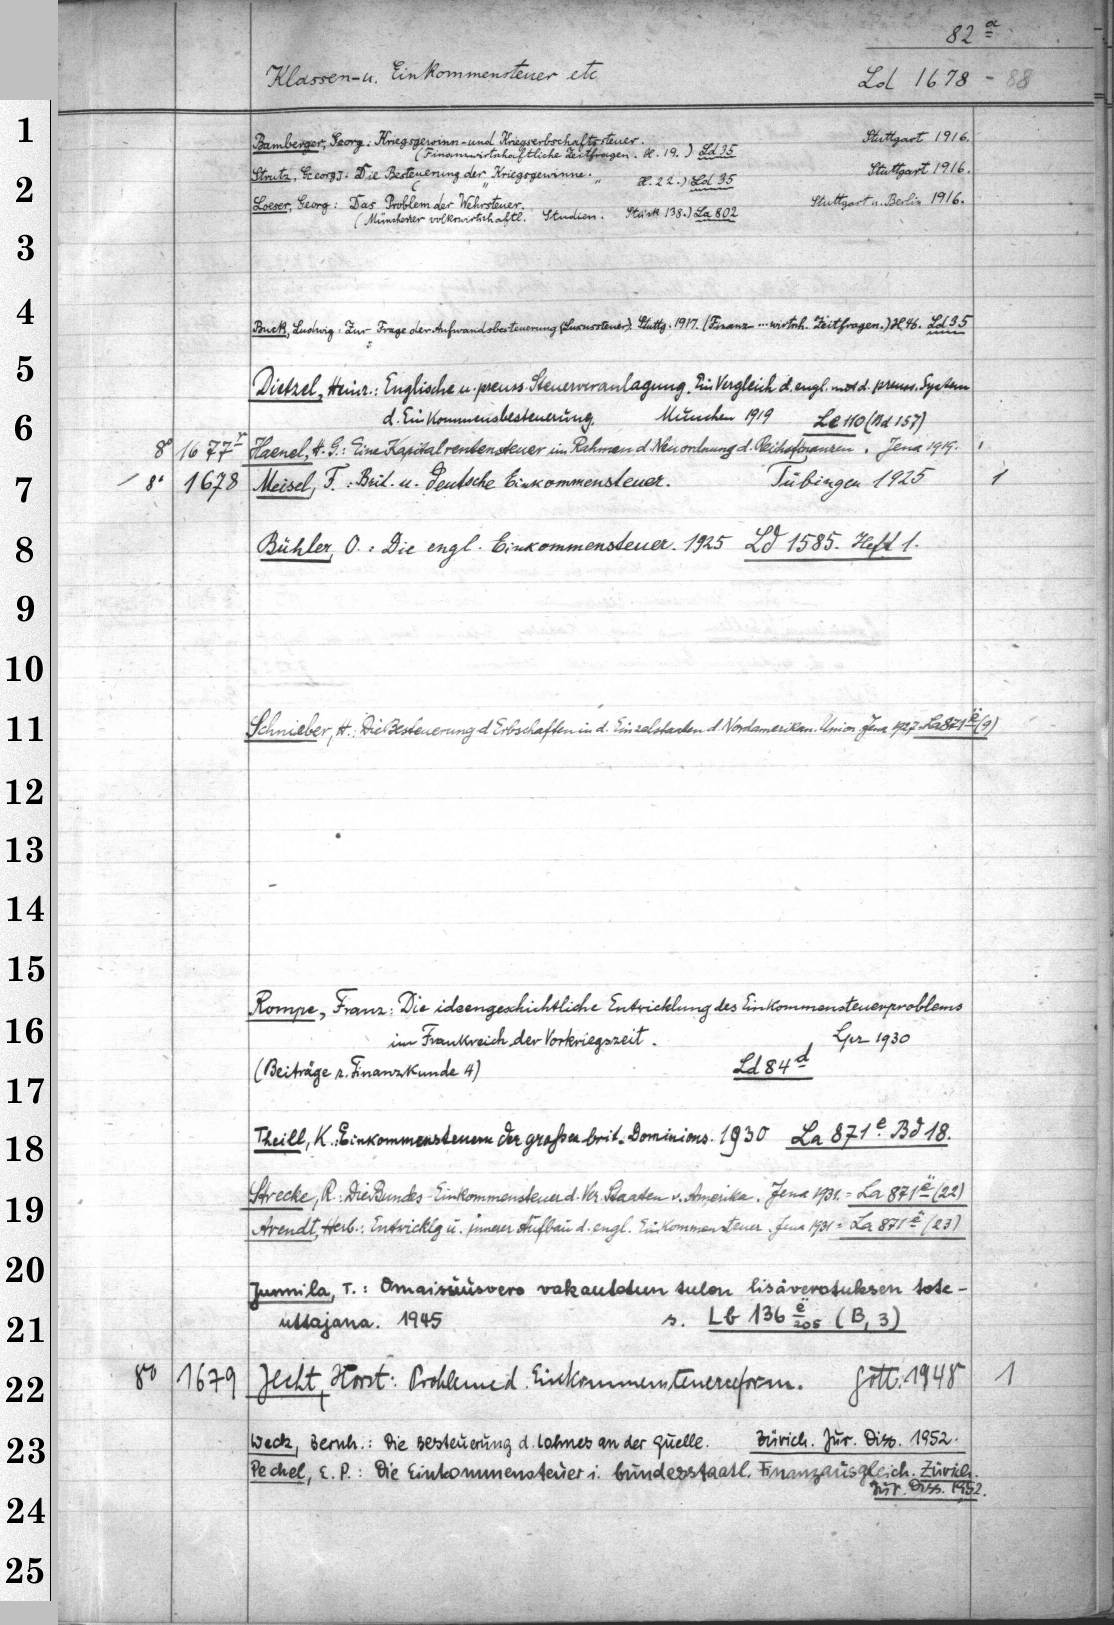 82 a
Klassen-u. Einkommensteuer etc Ld 1678 - 88
1
Bamberger, Georg: Kriegsgewinn- und Kriegserbschaftssteuer. Stuttgart 1916.
(Finanzwirtschaftliche Zeitfragen. H. 19.) Ld 35
Strutz, Georg J. Die Besteuerung der Kriegsgewinne. Stuttgart 1916.
2
( " " H. 22.) Ld 35
Loeser, Georg: Das Problem der Wehrsteuer. Stuttgart u. Berlin 1916.
(Münchener volkswirtschaftl. Studien. Stück 138.) La 802
3
4
Buck, Ludwig: Zur Frage der Aufwandsbesteuerung (Luxussteuer). Stuttg. 1917. (Finanz-...wirtsch. Zeitfragen.) H 46. Ld 35
5
Dietzel, Heinr.: Englische u. preuss. Steuerveranlagung. Ein Vergleich d. engl. mit d. preuss. System
6
d. Einkommensbesteuerung. München 1919 Le 110 (Bd 157)
8° 1677 Haenel, H. G.: Eine Kapitalrentensteuer im Rahmen d Neuordnung d. Reichsfinanzen. Jena 1919. 1
7
/ 8° 1678 Meisel, F.: Brit. u. deutsche Einkommensteuer. Tübingen 1925 1
8
Bühler, O.: Die engl. Einkommensteuer. 1925 Ld 1585. Heft 1.
9
10
11
Schnieber, H.: Die Besteuerung d Erbschaften in d. Einzelstaaten d. Nordamerikan. Union. Jena 1927 = La 871 ë (9)
12
13
14
15
Rompe, Franz: Die ideengeschichtliche Entwicklung des Einkommensteuerproblems
16
im Frankreich der Vorkriegszeit. Lpz 1930
(Beiträge z. Finanzkunde 4) Ld 84 d
17
18
Theill, K.: Einkommensteuern der großen brit. Dominions. 1930 La 871 e. Bd 18.
19
Strecke, R.: Die Bundes-Einkommensteuer d. Ver. Staaten v. Amerika. Jena 1931. = La 871 ë (22)
Arendt, Herb.: Entwicklg u. innerer Aufbau d. engl. Einkommensteuer. Jena 1931 = La 871 ë (23)
20
Junnila, T.: Omaisuusvero vakautetun tulon lisäverotuksen tote-
21
uttajana. 1945 s. Lb 136 ë/205 (B, 3)
22
8° 1679 Jecht, Horst: Probleme d. Einkommensteuerreform. Gött. 1948 1
23
Weck, Bernh.: Die Besteuerung d. Lohnes an der Quelle. Zürich. Jur. Diss. 1952.
Pechel, E. P.: Die Einkommensteuer i. bundesstaatl. Finanzausgleich. Zürich.
Jur. Diss. 1952.
24
25